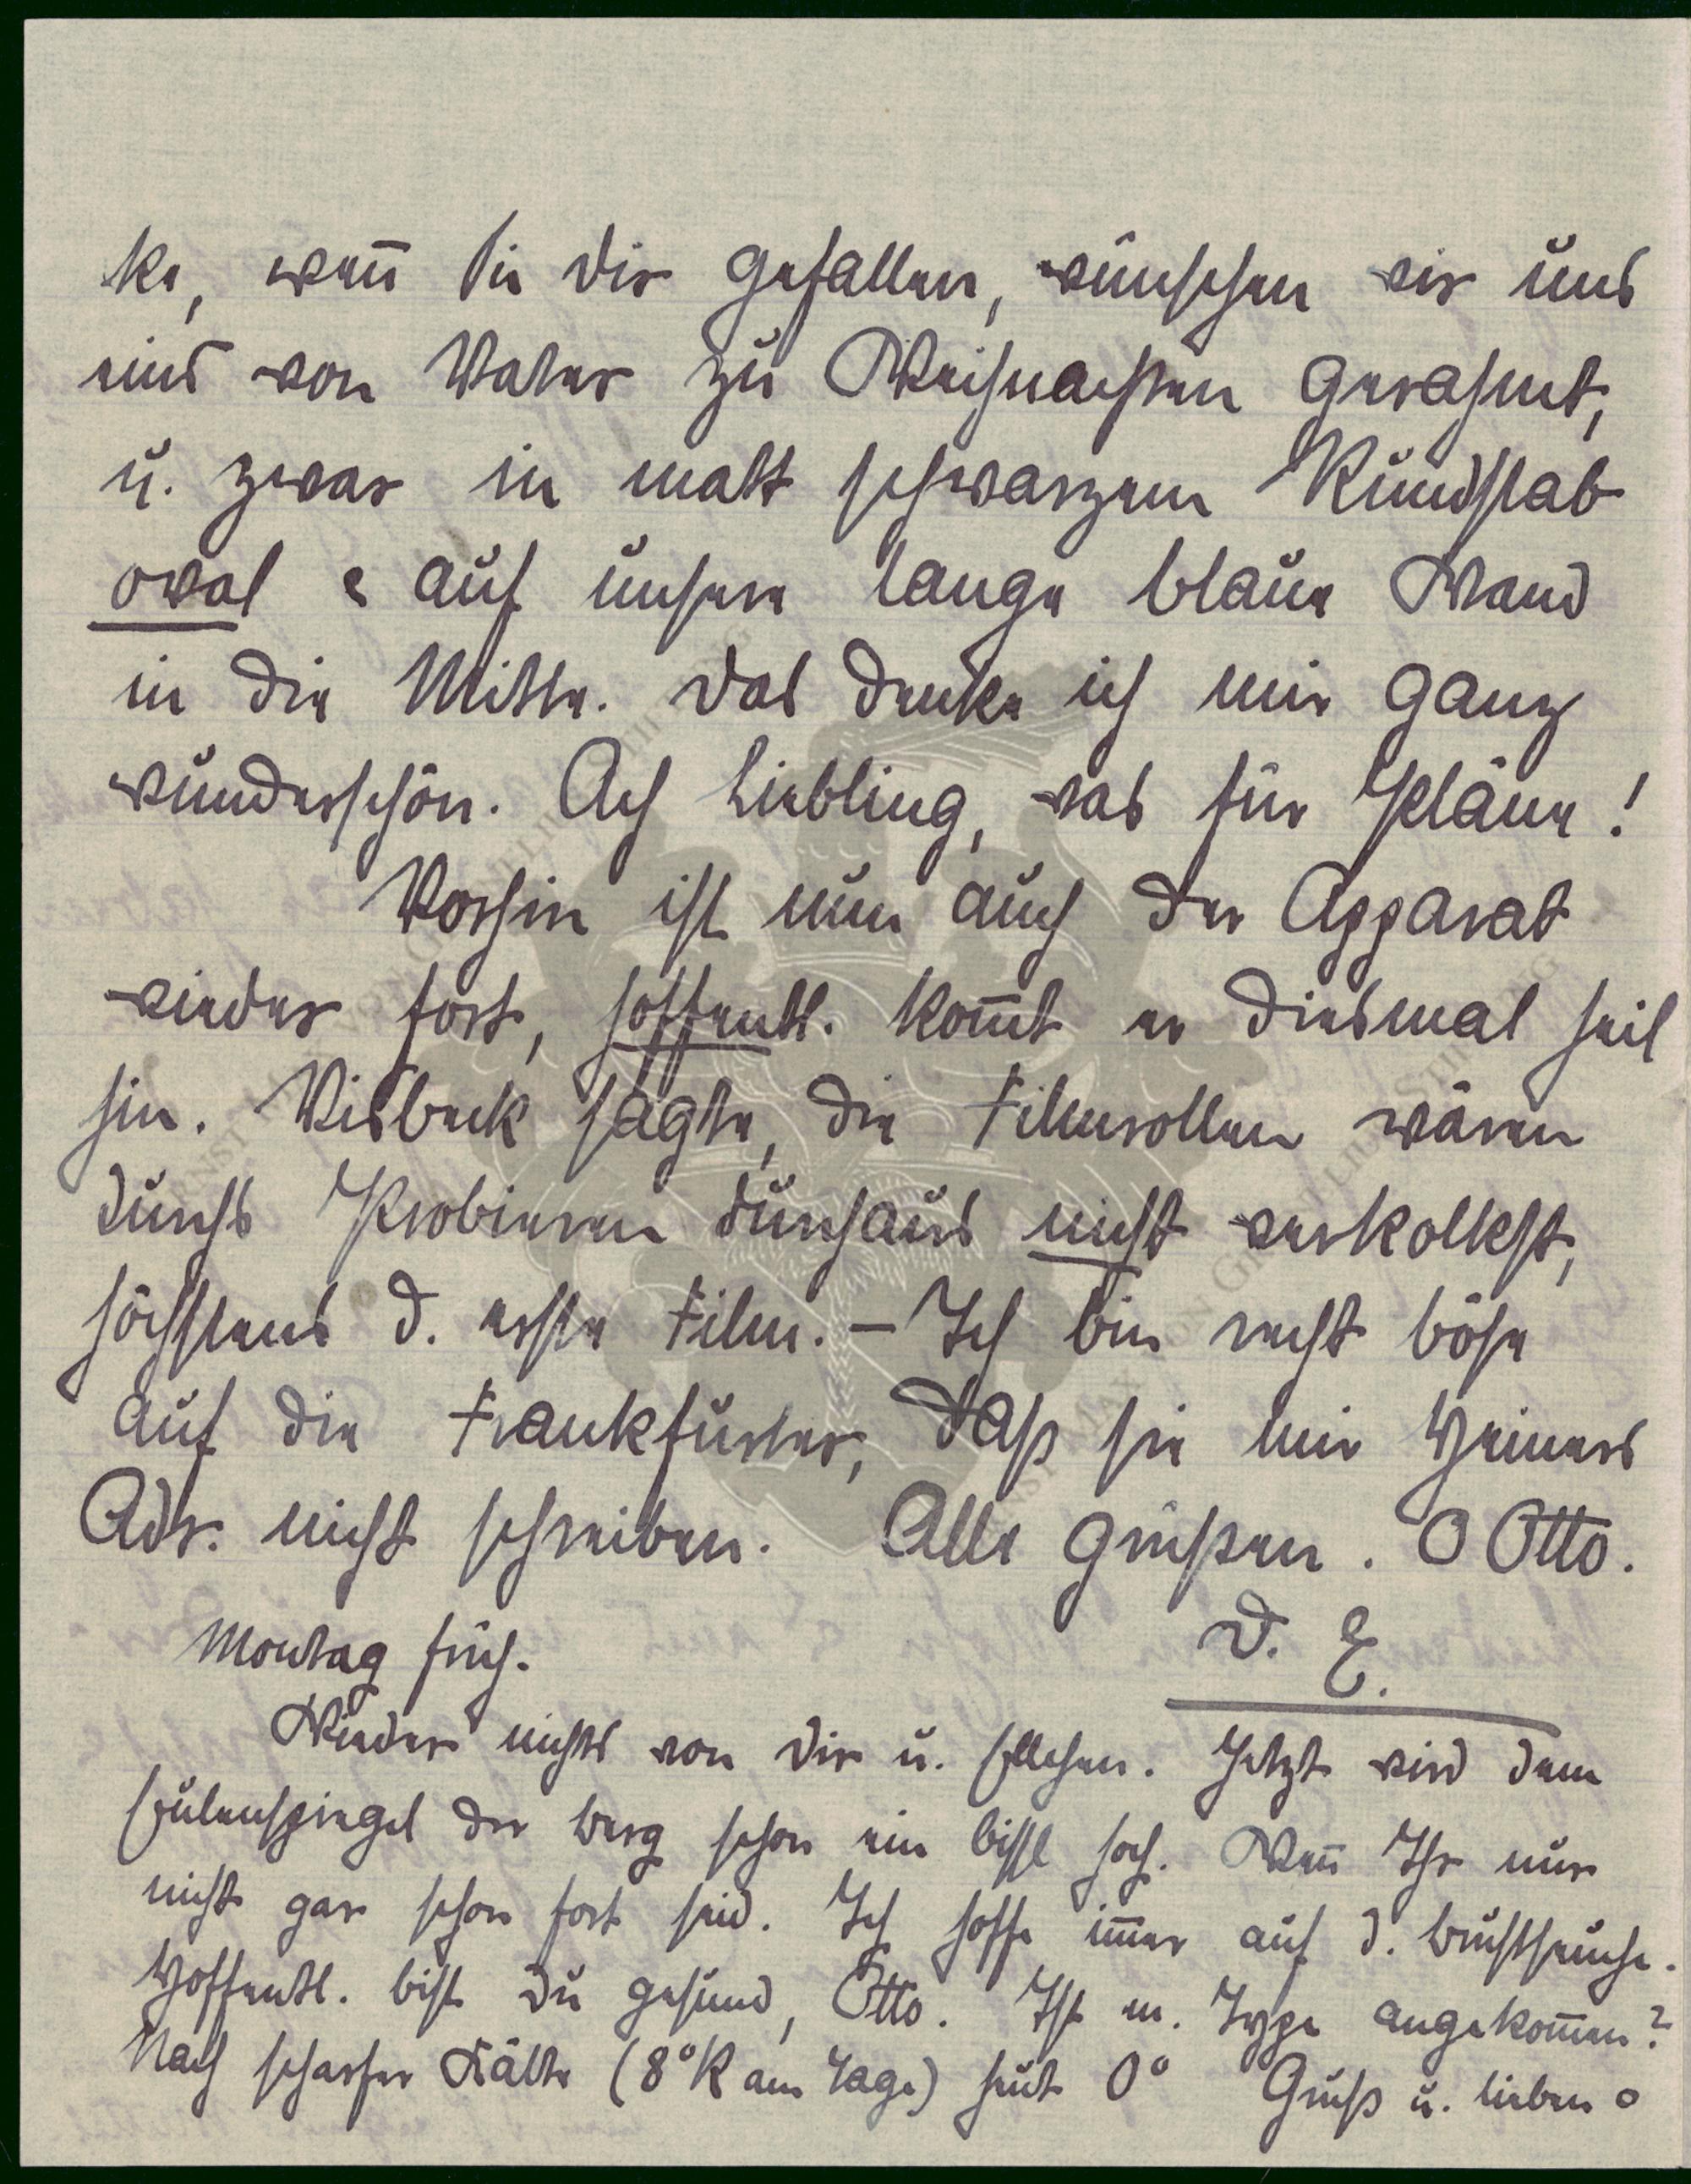 ke, wenn̄ sie dir gefallen, wünschen wir uns
eins von Vater zu Weihnachten gerahmt,
u. zwar in matt schwarzem Rundstab
oval & auf unsere lange blaue Wand
in die Mitte. Das denke ich mir ganz
wunderschön. Ach Liebling, was für Pläne!
Vorhin ist nun auch der Apparat
wieder fort, hoffentl. kom̄t er diesmal heil
hin. Visbeck sagte, die Filmrollen wären
durchs Probieren durchaus nicht verkorkst,
höchstens d. erste Film. – Ich bin recht böse
auf die Frankfurter, daß sie mir Heiners
Adr. nicht schreiben. Alle grüßen. O Otto.
D. E.
Montag früh.
Wieder nichts von Dir u. Ellchen. Jetzt wird dem
Eulenspiegel der Berg schon ein bissl hoch. Wen̄ Ihr nur
nicht gar schon fort seid. Ich hoffe im̄er auf d. Brustseuche.
Hoffentl. bist du gesund, Otto. Ist m. Type angekom̄en?
Nach scharfer Kälte (8°R am Tage) heut 0° Gruß u. lieben o